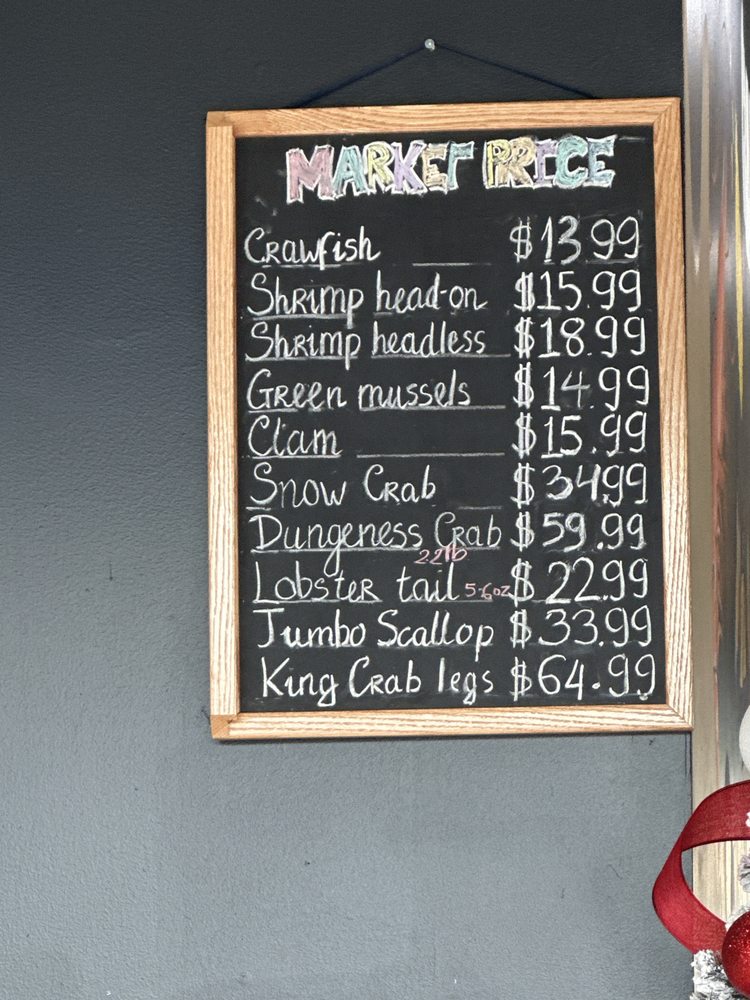 MARKET PRICE
Crawfish $13.99
Shrimp head-on $15.99
Shrimp headless $18.99
Green mussels $14.99
Clam $15.99
Snow Crab $34.99
Dungeness Crab $59.99
2.2lb
Lobster tail 5-6oz $22.99
Jumbo Scallop $33.99
King Crab legs $64.99